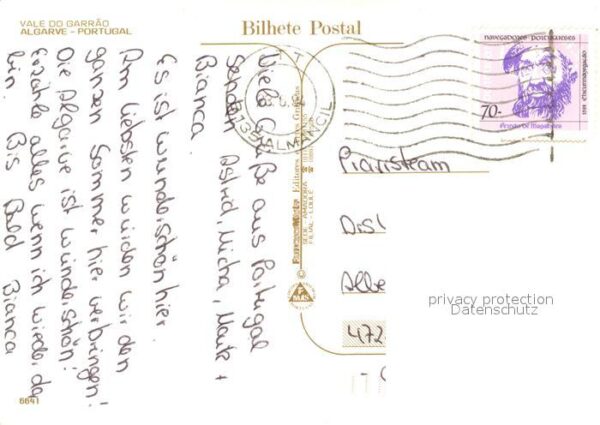 VALE DO GARRÃO
ALGARVE - PORTUGAL
Bilhete Postal
navegadores portugueses
70.-
Fernão de Magalhães
8135 ALMANCIL
Viele Grüße aus Portugal
Senden Astrid, Micha, Maite +
Bianca.
Es ist wunderschön hier.
Am liebsten würden wir den
ganzen Sommer hier verbringen!
Die Algarve ist wunderschön!
Erzähle alles wenn ich wieder da
bin. Bis Bald Bianca
Editores
SEDE - AMADORA
FILIAL - LOULÉ
Albe
472
privacy protection
Datenschutz
6641